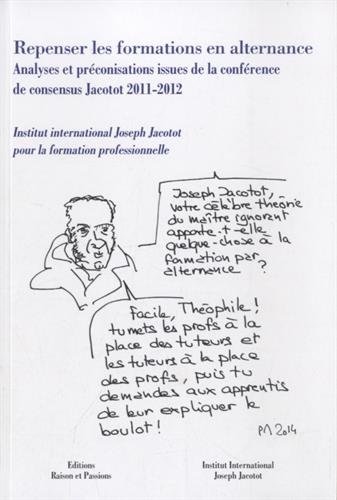 Repenser les formations en alternance
Analyses et préconisations issues de la conférence
de consensus Jacotot 2011-2012
Institut international Joseph Jacotot
pour la formation professionnelle
Joseph Jacotot,
votre célèbre théorie
du maître ignorant
apporte-t-elle
quelque-chose à la
formation par
alternance ?
Facile, Théophile !
tu mets les profs à la
place des tuteurs et
les tuteurs à la place
des profs, puis tu
demandes aux apprentis
de leur expliquer le
boulot !
PM 2014
Editions
Raison et Passions
Institut International
Joseph Jacotot